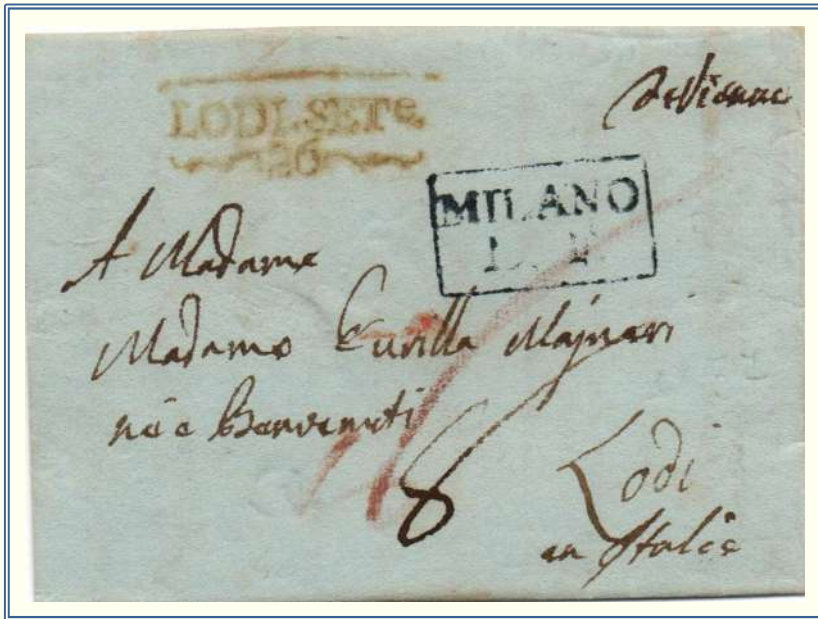 LODI.SETe
26
de Vienne
MILANO
L. I.
A Madame
Madame Eurilla Majneri
née Benvenuti
8
Lodi
en Italie